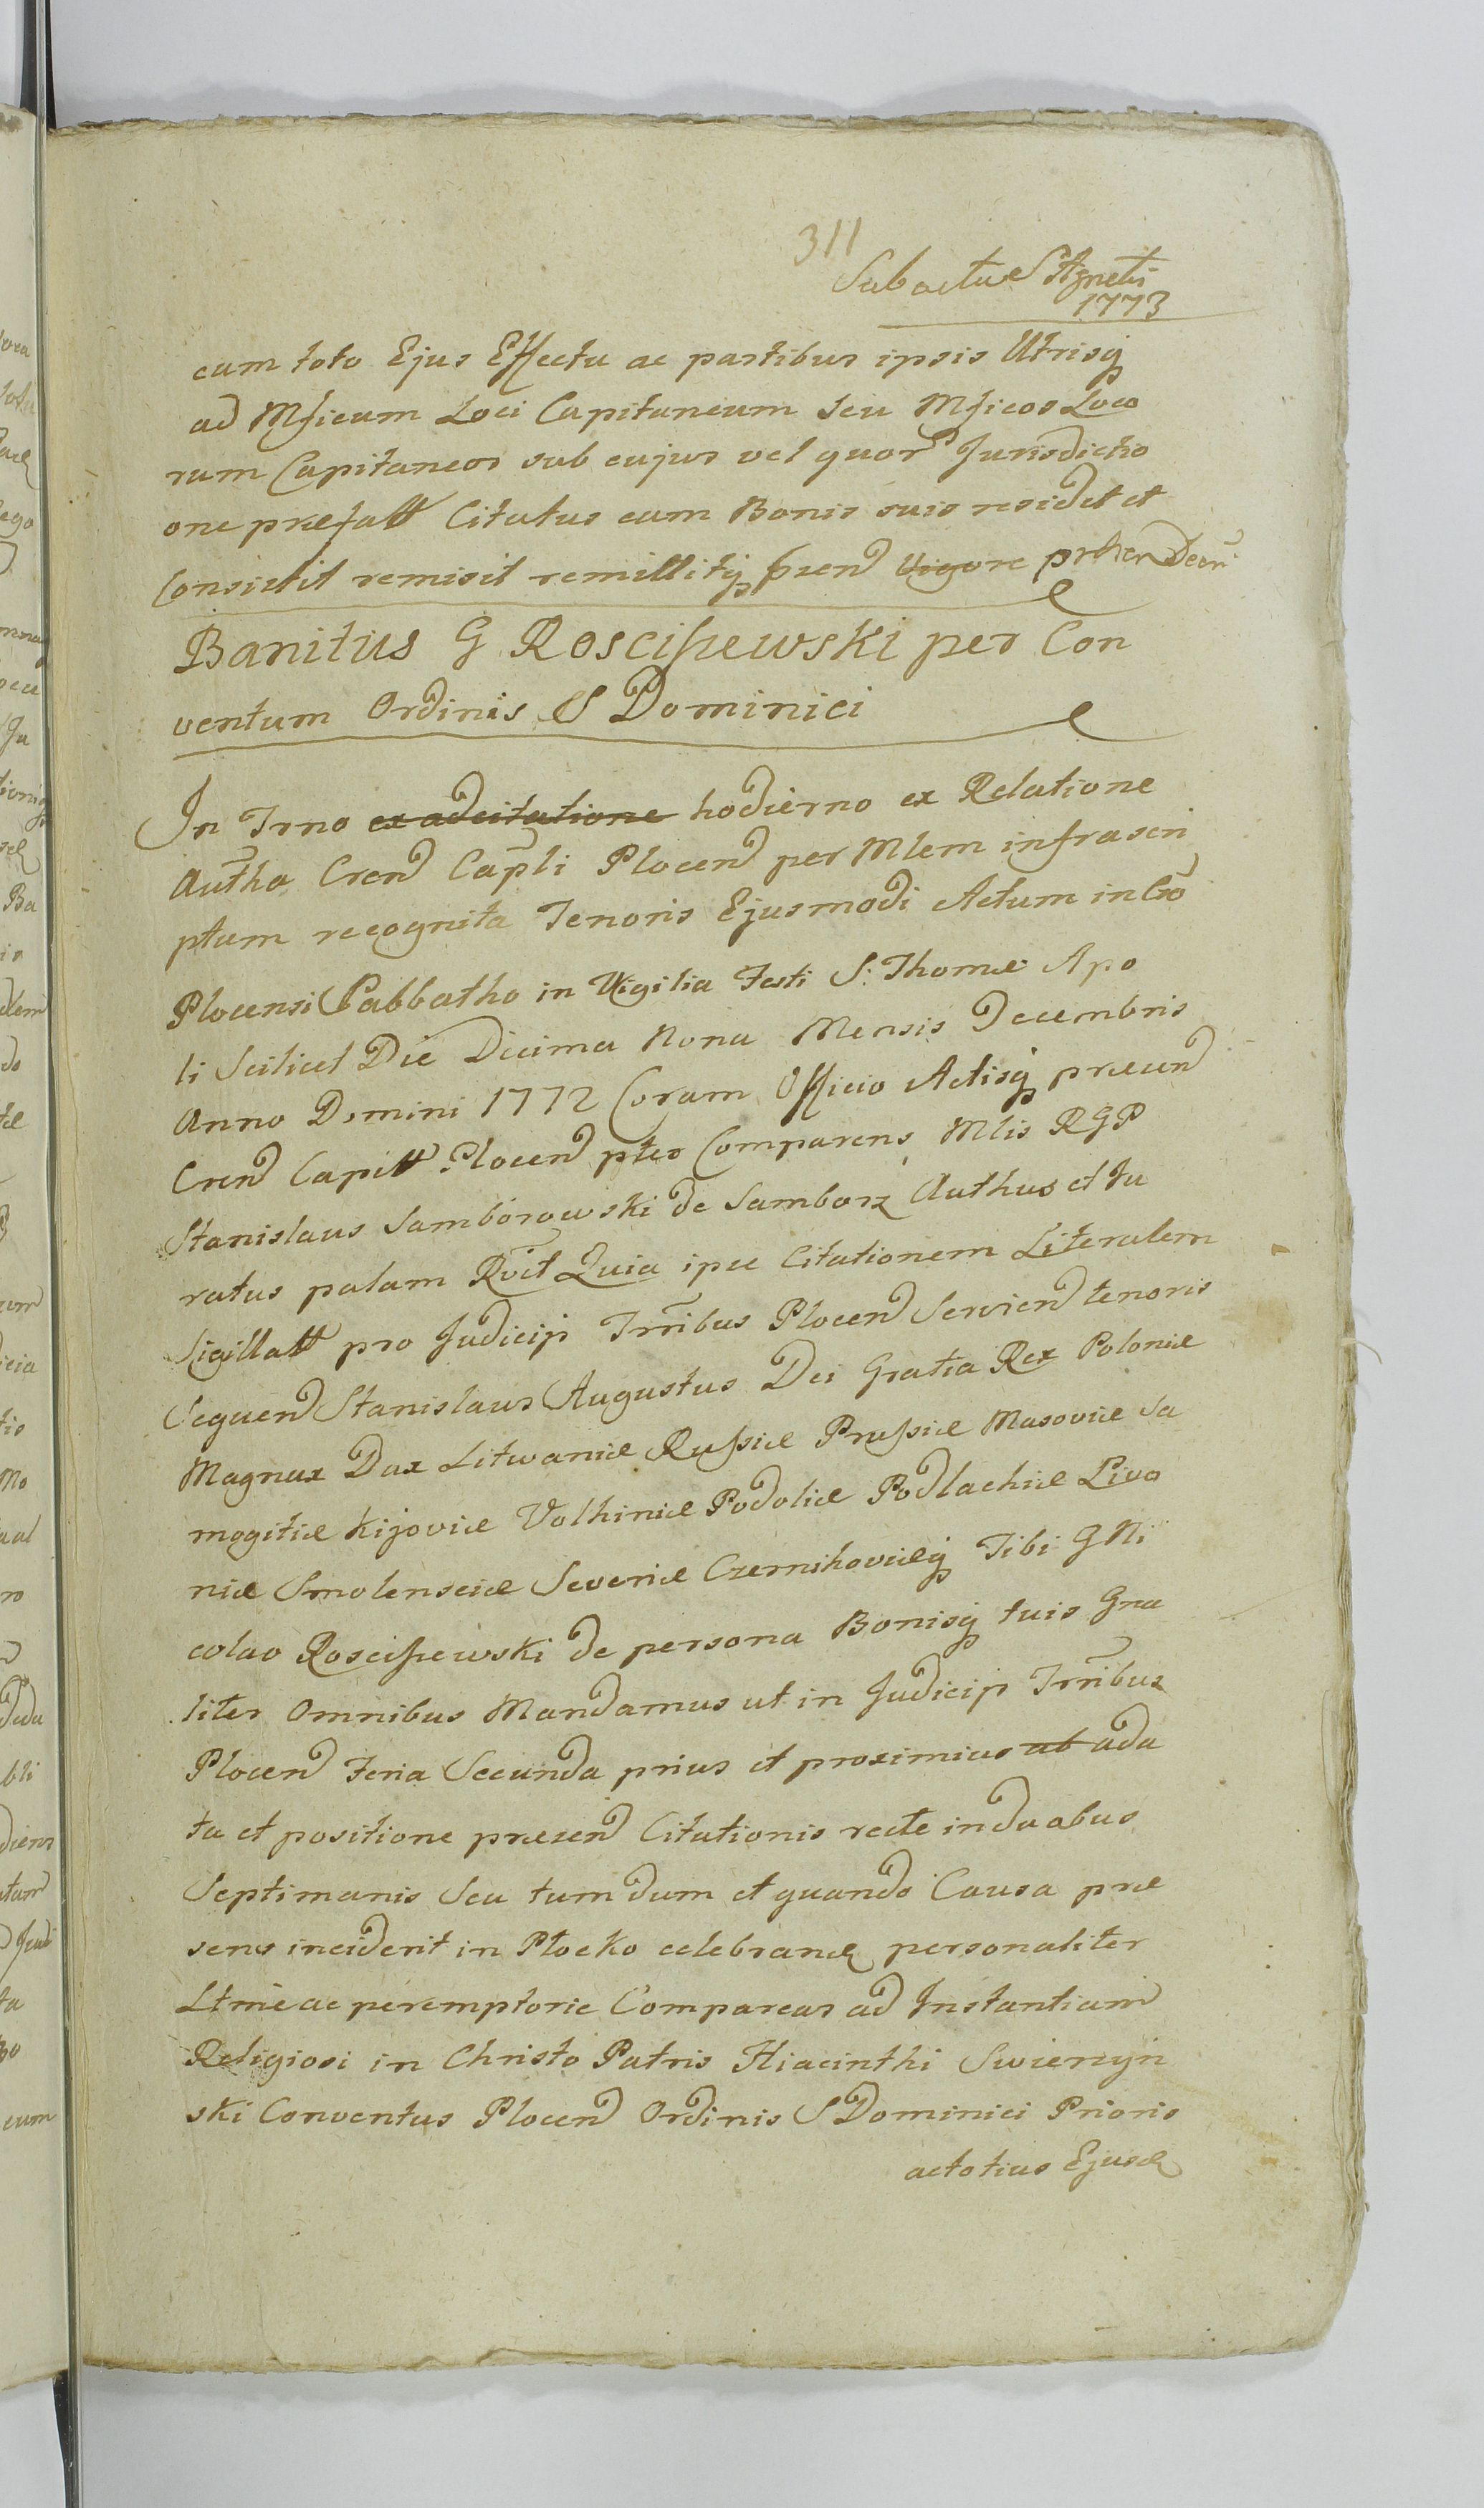 311
Sub actu S Agnetis
1773
cum toto Ejus Effectu ac partibus ipsis Utrisq
ad Mficum Loci Capitaneum seu Mficos Loco
rum Capitaneos sub cujus vel quor Jurisdictio
one præfatt Citatus cum Bonis suis residet et
Consistit remisit remittitq præsen Vigore Decri
Banitus G Rosciszewski per Con
ventum Ordinis S Dominici
In Trno ex adcitatione hodierno ex Relatione
Autha Cren Capli Plocen per Mlem infrascri
ptum recognita Tenoris Ejusmodi Actum in Cro
Plocensi Sabbatho in Vigilia Festi S. Thomæ Apo
li Scilicet Die Decima Nona Mensis Decembris
Anno Domini 1772 Coram Officio Actisq præsen
Cren Capitt Plocen pter Comparens Mlis RGP
Stanislaus Samborowski de Samborz Authus et Ju
ratus palam Rvit Quia ipse Citationem Literalem
Sigillatt pro Judicijs Trribus Plocen Servien tenoris
Sequen Stanislaus Augustus Dei Gratia Rex Poloniæ
Magnus Dux Litwaniæ Russiæ Prussiæ Masoviæ Sa
mogitiæ Kijoviæ Volhiniæ Podoliæ Podlachiæ Livo
niæ Smolensciæ Severiæ Czernihoviæq Tibi G Ni
colao Rosciszewski de persona Bonisq tuis Gna
liter Omnibus Mandamus ut in Judicijs Trribus
Plocen Feria Secunda prius et proximius ab ada
ta et positione præsen Citationis recte in duabus
Septimanis Seu tum dum et quando Causa præ
sens inciderit in Płocko celebran personaliter
Ltmè ac peremptorie Compareas ad Instantiam
Religiosi in Christo Patris Hiacinthi Swierczyn
ski Conventus Plocen Ordinis S Dominici Prioris
ac totius Ejusd